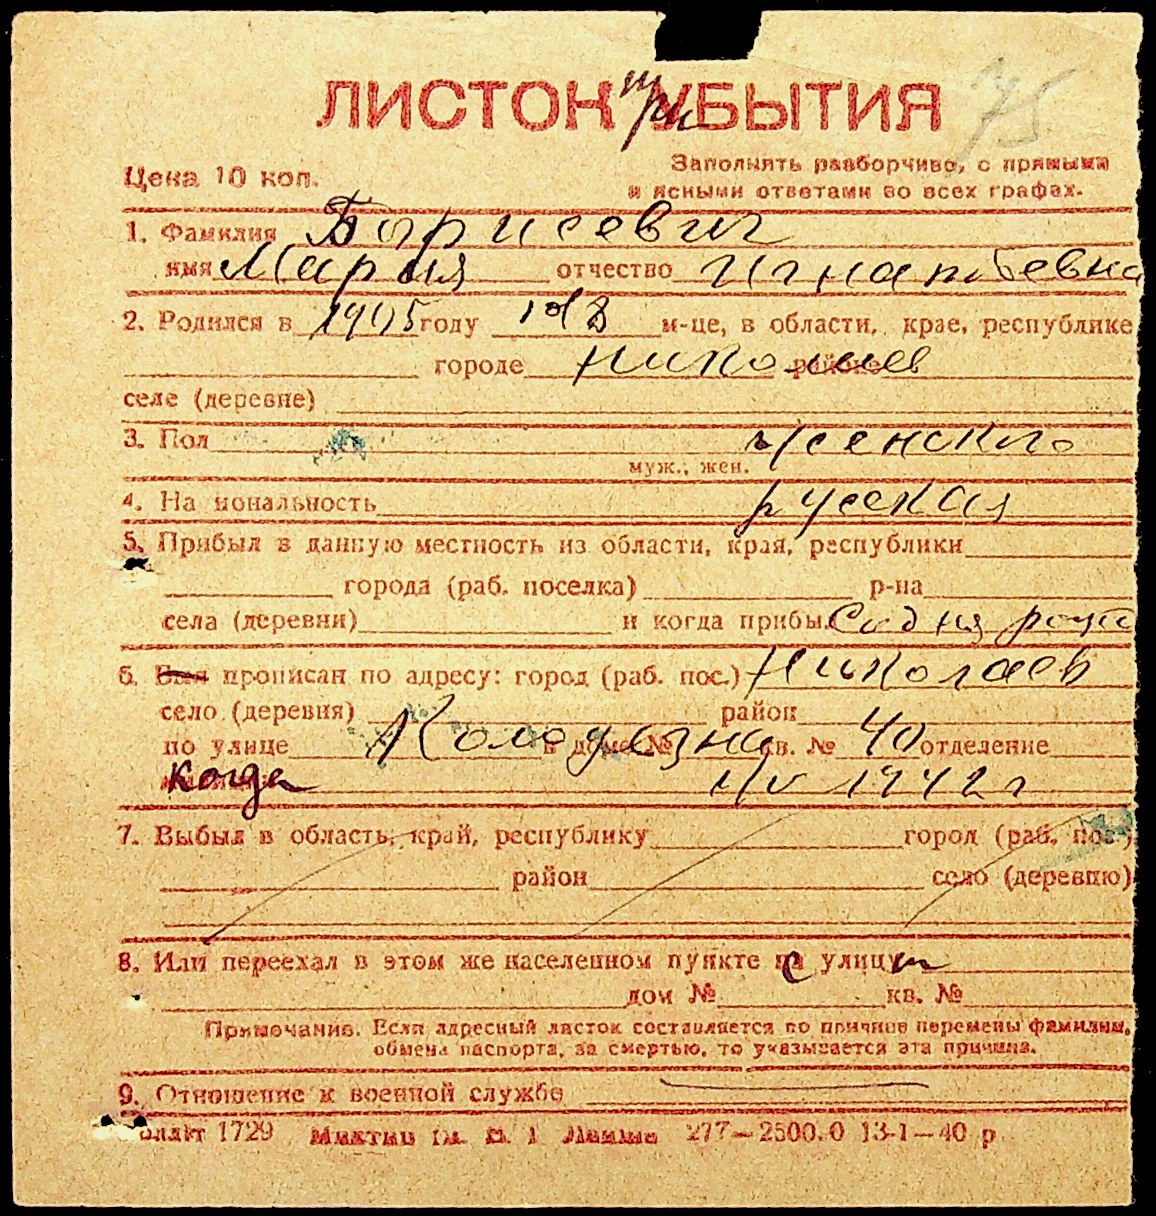 ЛИСТОК "при УБЫТИЯ 75
Цена 10 коп.
Заполнять разборчиво, с прямыми
и ясными ответами во всех графах.
1. Фамилия Борисевич
имя Мария отчество Игнатьевна
2. Родился в 1905 году м-це, в области, крае, республике
городе Николаев районе
селе (деревне)
3. Пол женского
муж., жен.
4. На иональность русская
5. Прибыл в данную местность из области, края, республики
города (раб. поселка) р-на
села (деревни) и когда прибыл Со дня рожд
6. Был прописан по адресу: город (раб. пос.) Николаев
село (деревня) район
по улице Колодезна в доме № кв. № 40 отделение
когда 1/V 1942 г
7. Выбыл в область, край, республику город (раб. пос.)
район село (деревню)
8. Или переехал в этом же населенном пункте с улицы
дом № кв. №
Примечание. Если адресный листок составляется по причине перемены фамилии,
обмена паспорта, за смертью, то указывается эта причина.
9. Отношение к военной службе
1729 277—2500.0 13-1—40 р